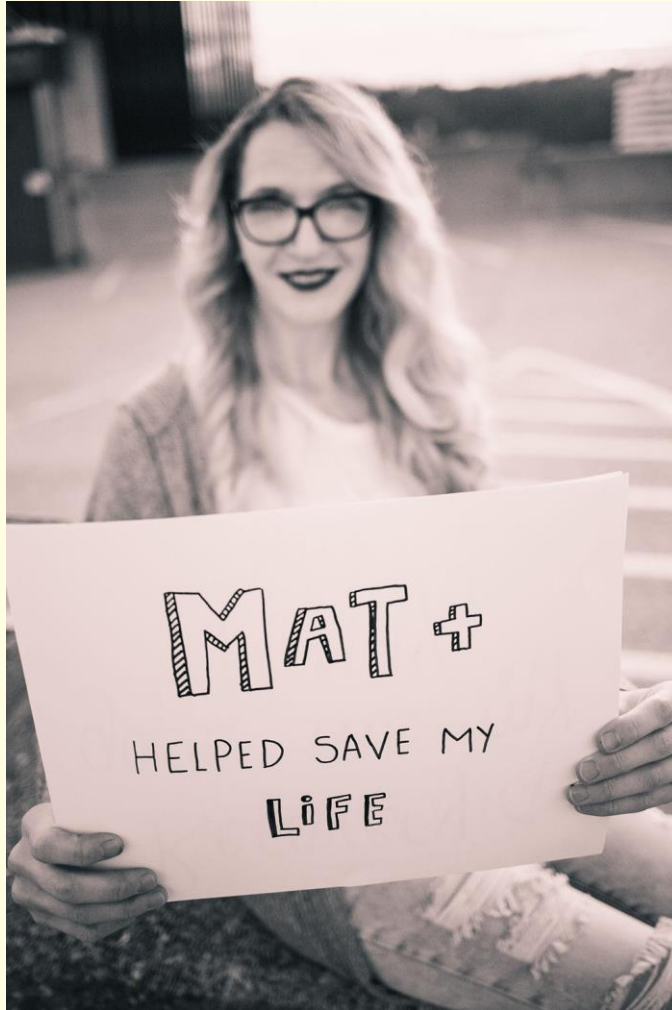 MAT +
HELPED SAVE MY
LiFE